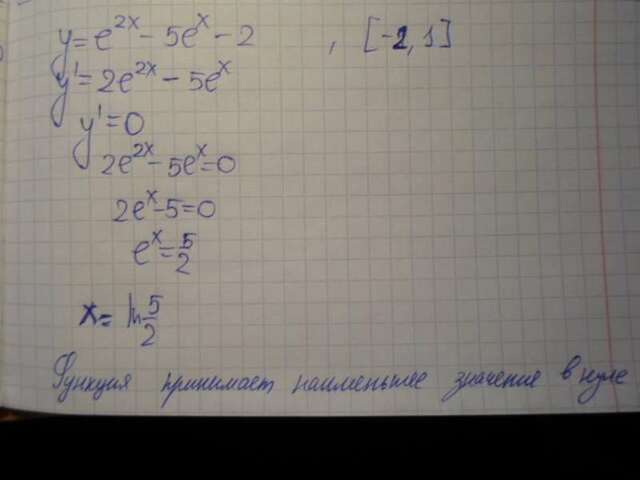 y=e^{2x}-5e^x-2 , [-2,1]
y'=2e^{2x}-5e^x
y'=0
2e^{2x}-5e^x=0
2e^x-5=0
e^x=5/2
x=ln 5/2
Функция принимает наименьшее значение в нуле